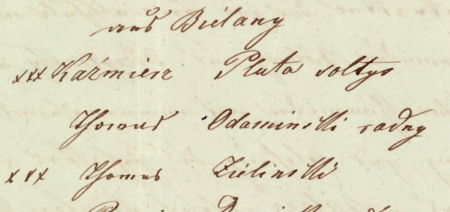 aus Bielany
xxx Kaźmierz Pluta soltys
Thomas Odaminski radny
xxx Thomas Zielinski